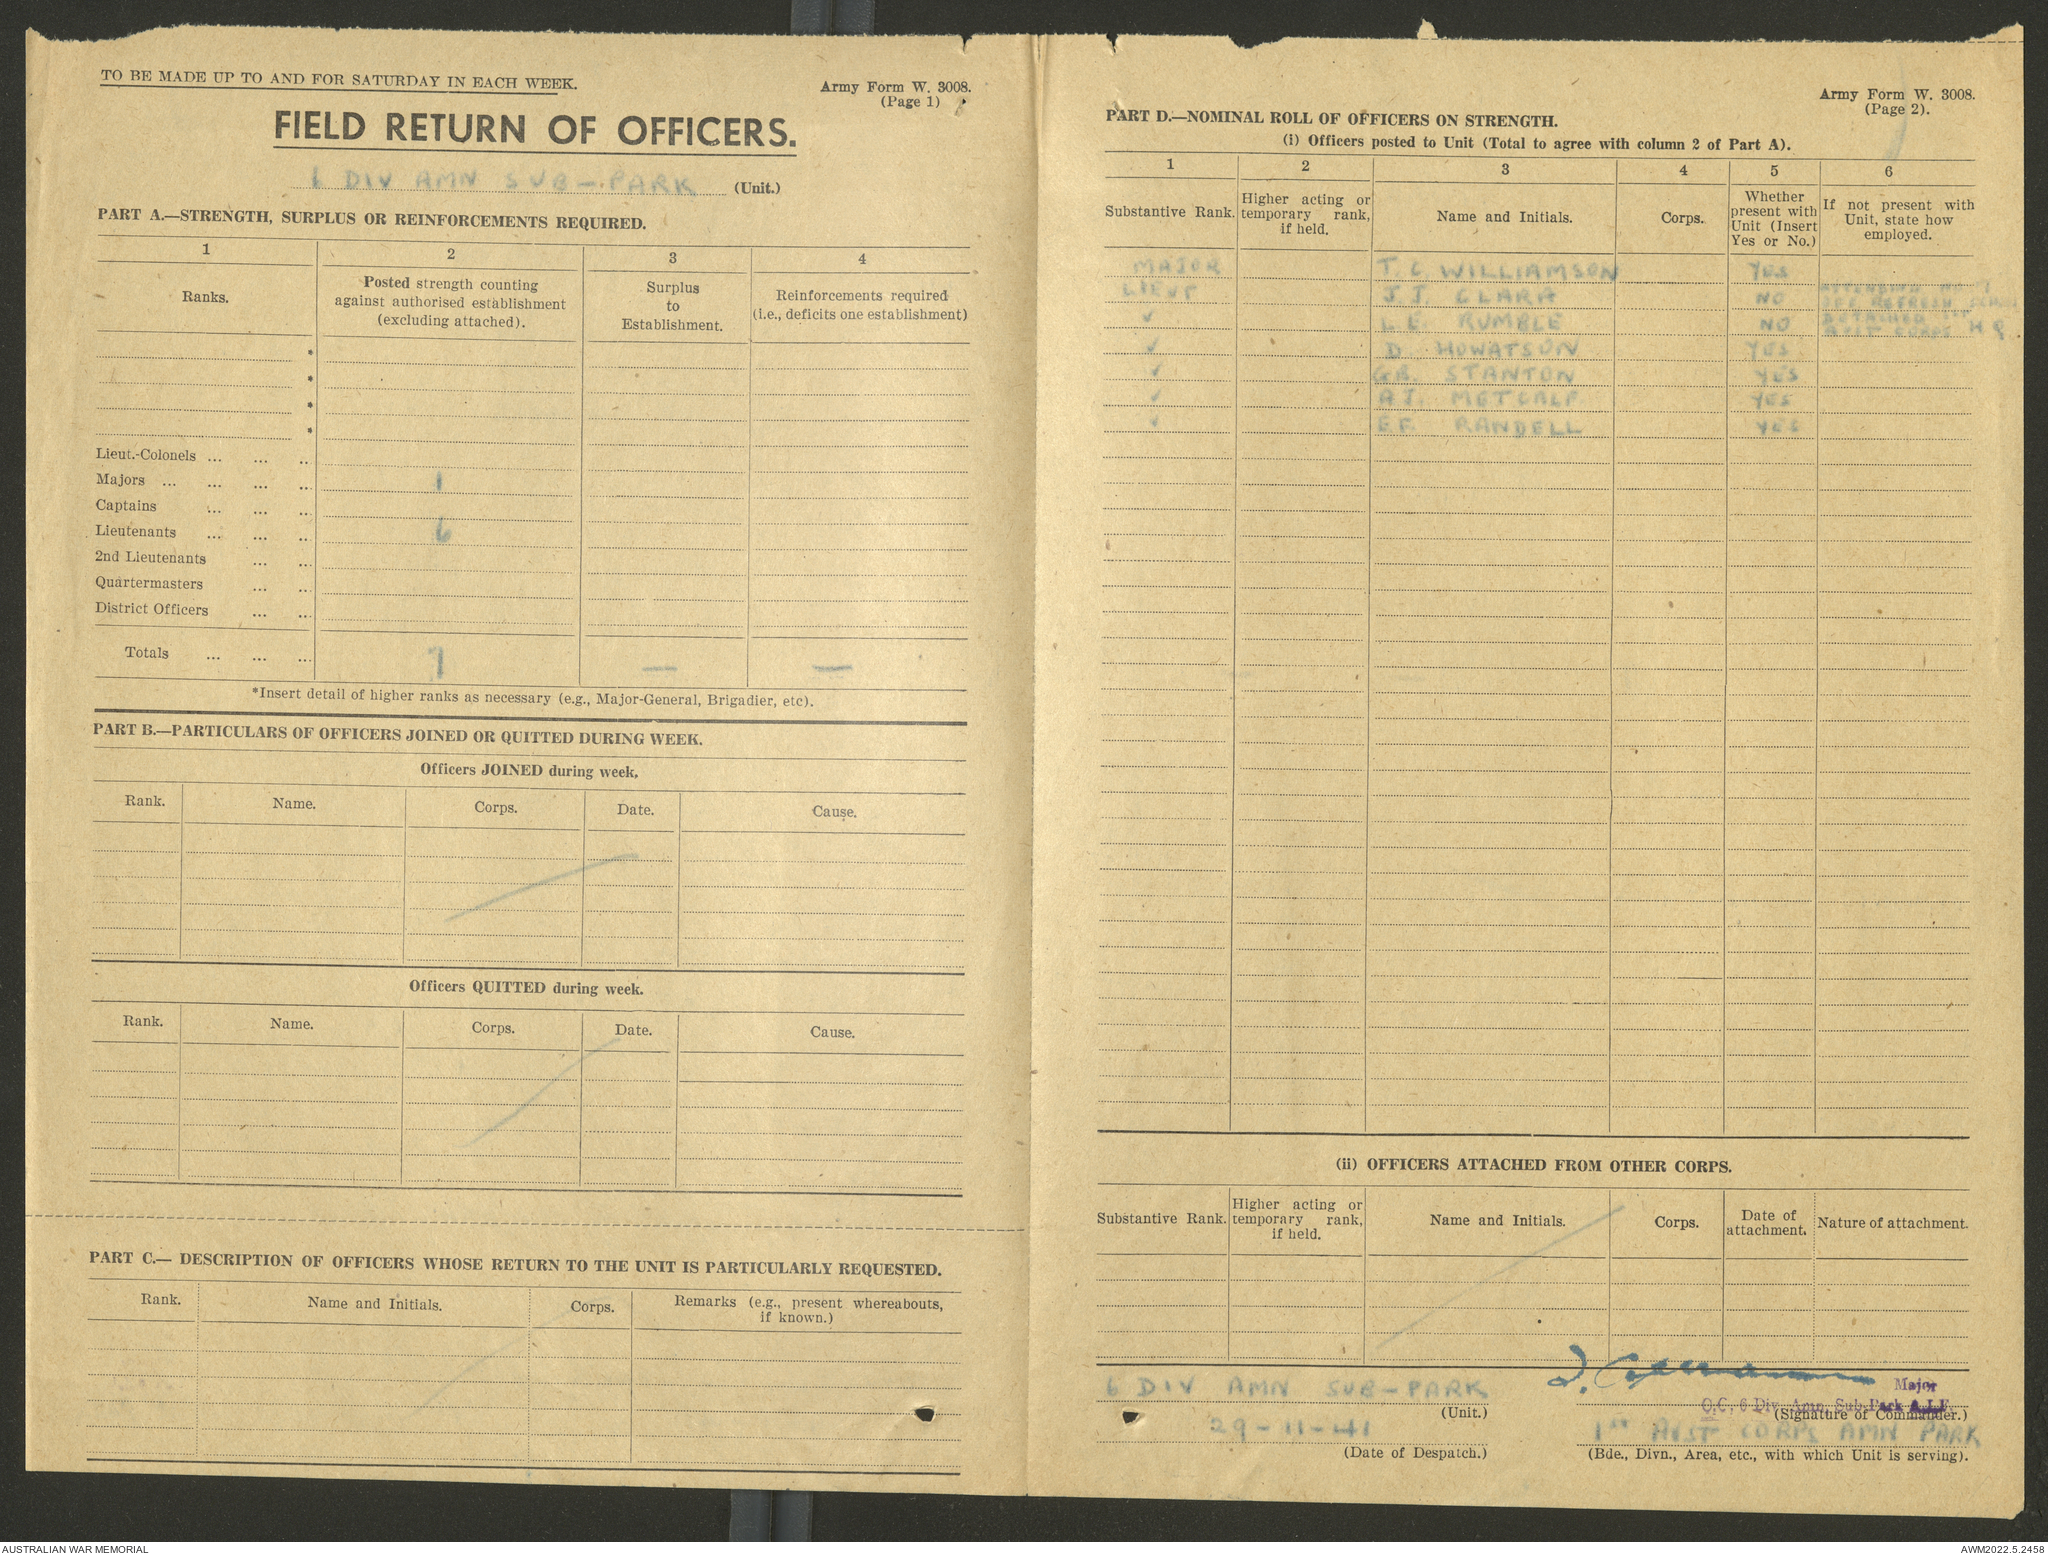 TO BE MADE UP TO AND FOR SATURDAY IN EACH WEEK.
Army Form W. 3008.
(Page 1)
FIELD RETURN OF OFFICERS.
6 DIV AMN SUB-PARK (Unit.)
PART A.—STRENGTH, SURPLUS OR REINFORCEMENTS REQUIRED.
1 2 3 4
Ranks.
Posted strength counting
against authorised establishment
(excluding attached).
Surplus
to
Establishment.
Reinforcements required
(i.e., deficits one establishment)
*
*
*
*
Lieut.-Colonels ... ... ..
Majors ... ... ... ... 1
Captains ... ... ...
Lieutenants ... ... .. 6
2nd Lieutenants ... ...
Quartermasters ... ..
District Officers ... ..
Totals ... ... ... 7 — —
*Insert detail of higher ranks as necessary (e.g., Major-General, Brigadier, etc).
PART B.—PARTICULARS OF OFFICERS JOINED OR QUITTED DURING WEEK.
Officers JOINED during week.
Rank. Name. Corps. Date. Cause.
Officers QUITTED during week.
Rank. Name. Corps. Date. Cause.
PART C.— DESCRIPTION OF OFFICERS WHOSE RETURN TO THE UNIT IS PARTICULARLY REQUESTED.
Rank. Name and Initials. Corps.
Remarks (e.g., present whereabouts,
if known.)
Army Form W. 3008.
(Page 2).
PART D.—NOMINAL ROLL OF OFFICERS ON STRENGTH.
(i) Officers posted to Unit (Total to agree with column 2 of Part A).
1 2 3 4 5 6
Substantive Rank.
Higher acting or
temporary rank,
if held.
Name and Initials.
Corps.
Whether
present with
Unit (Insert
Yes or No.)
If not present with
Unit, state how
employed.
MAJOR T. C. WILLIAMSON YES
LIEUT J. J. CLARA NO ATTENDING NO 1
OFF REFRESH SCHOOL
✓ L. E. RUMBLE NO DETACHED 1ST
AUST CORPS HQ
✓ D. HOWATSON YES
✓ G.B. STANTON YES
✓ A.J. METCALF YES
✓ E.F. RANDELL YES
(ii) OFFICERS ATTACHED FROM OTHER CORPS.
Substantive Rank.
Higher acting or
temporary rank,
if held.
Name and Initials.
Corps.
Date of
attachment.
Nature of attachment.
Major
6 DIV AMN SUB-PARK
O.C. 6 Div. Amn. Sub-Park A.I.F.
(Unit.)
(Signature of Commander.)
29-11-41
1ST AUST CORPS AMN PARK
(Date of Despatch.)
(Bde., Divn., Area, etc., with which Unit is serving).
AUSTRALIAN WAR MEMORIAL
AWM2022.5.2458